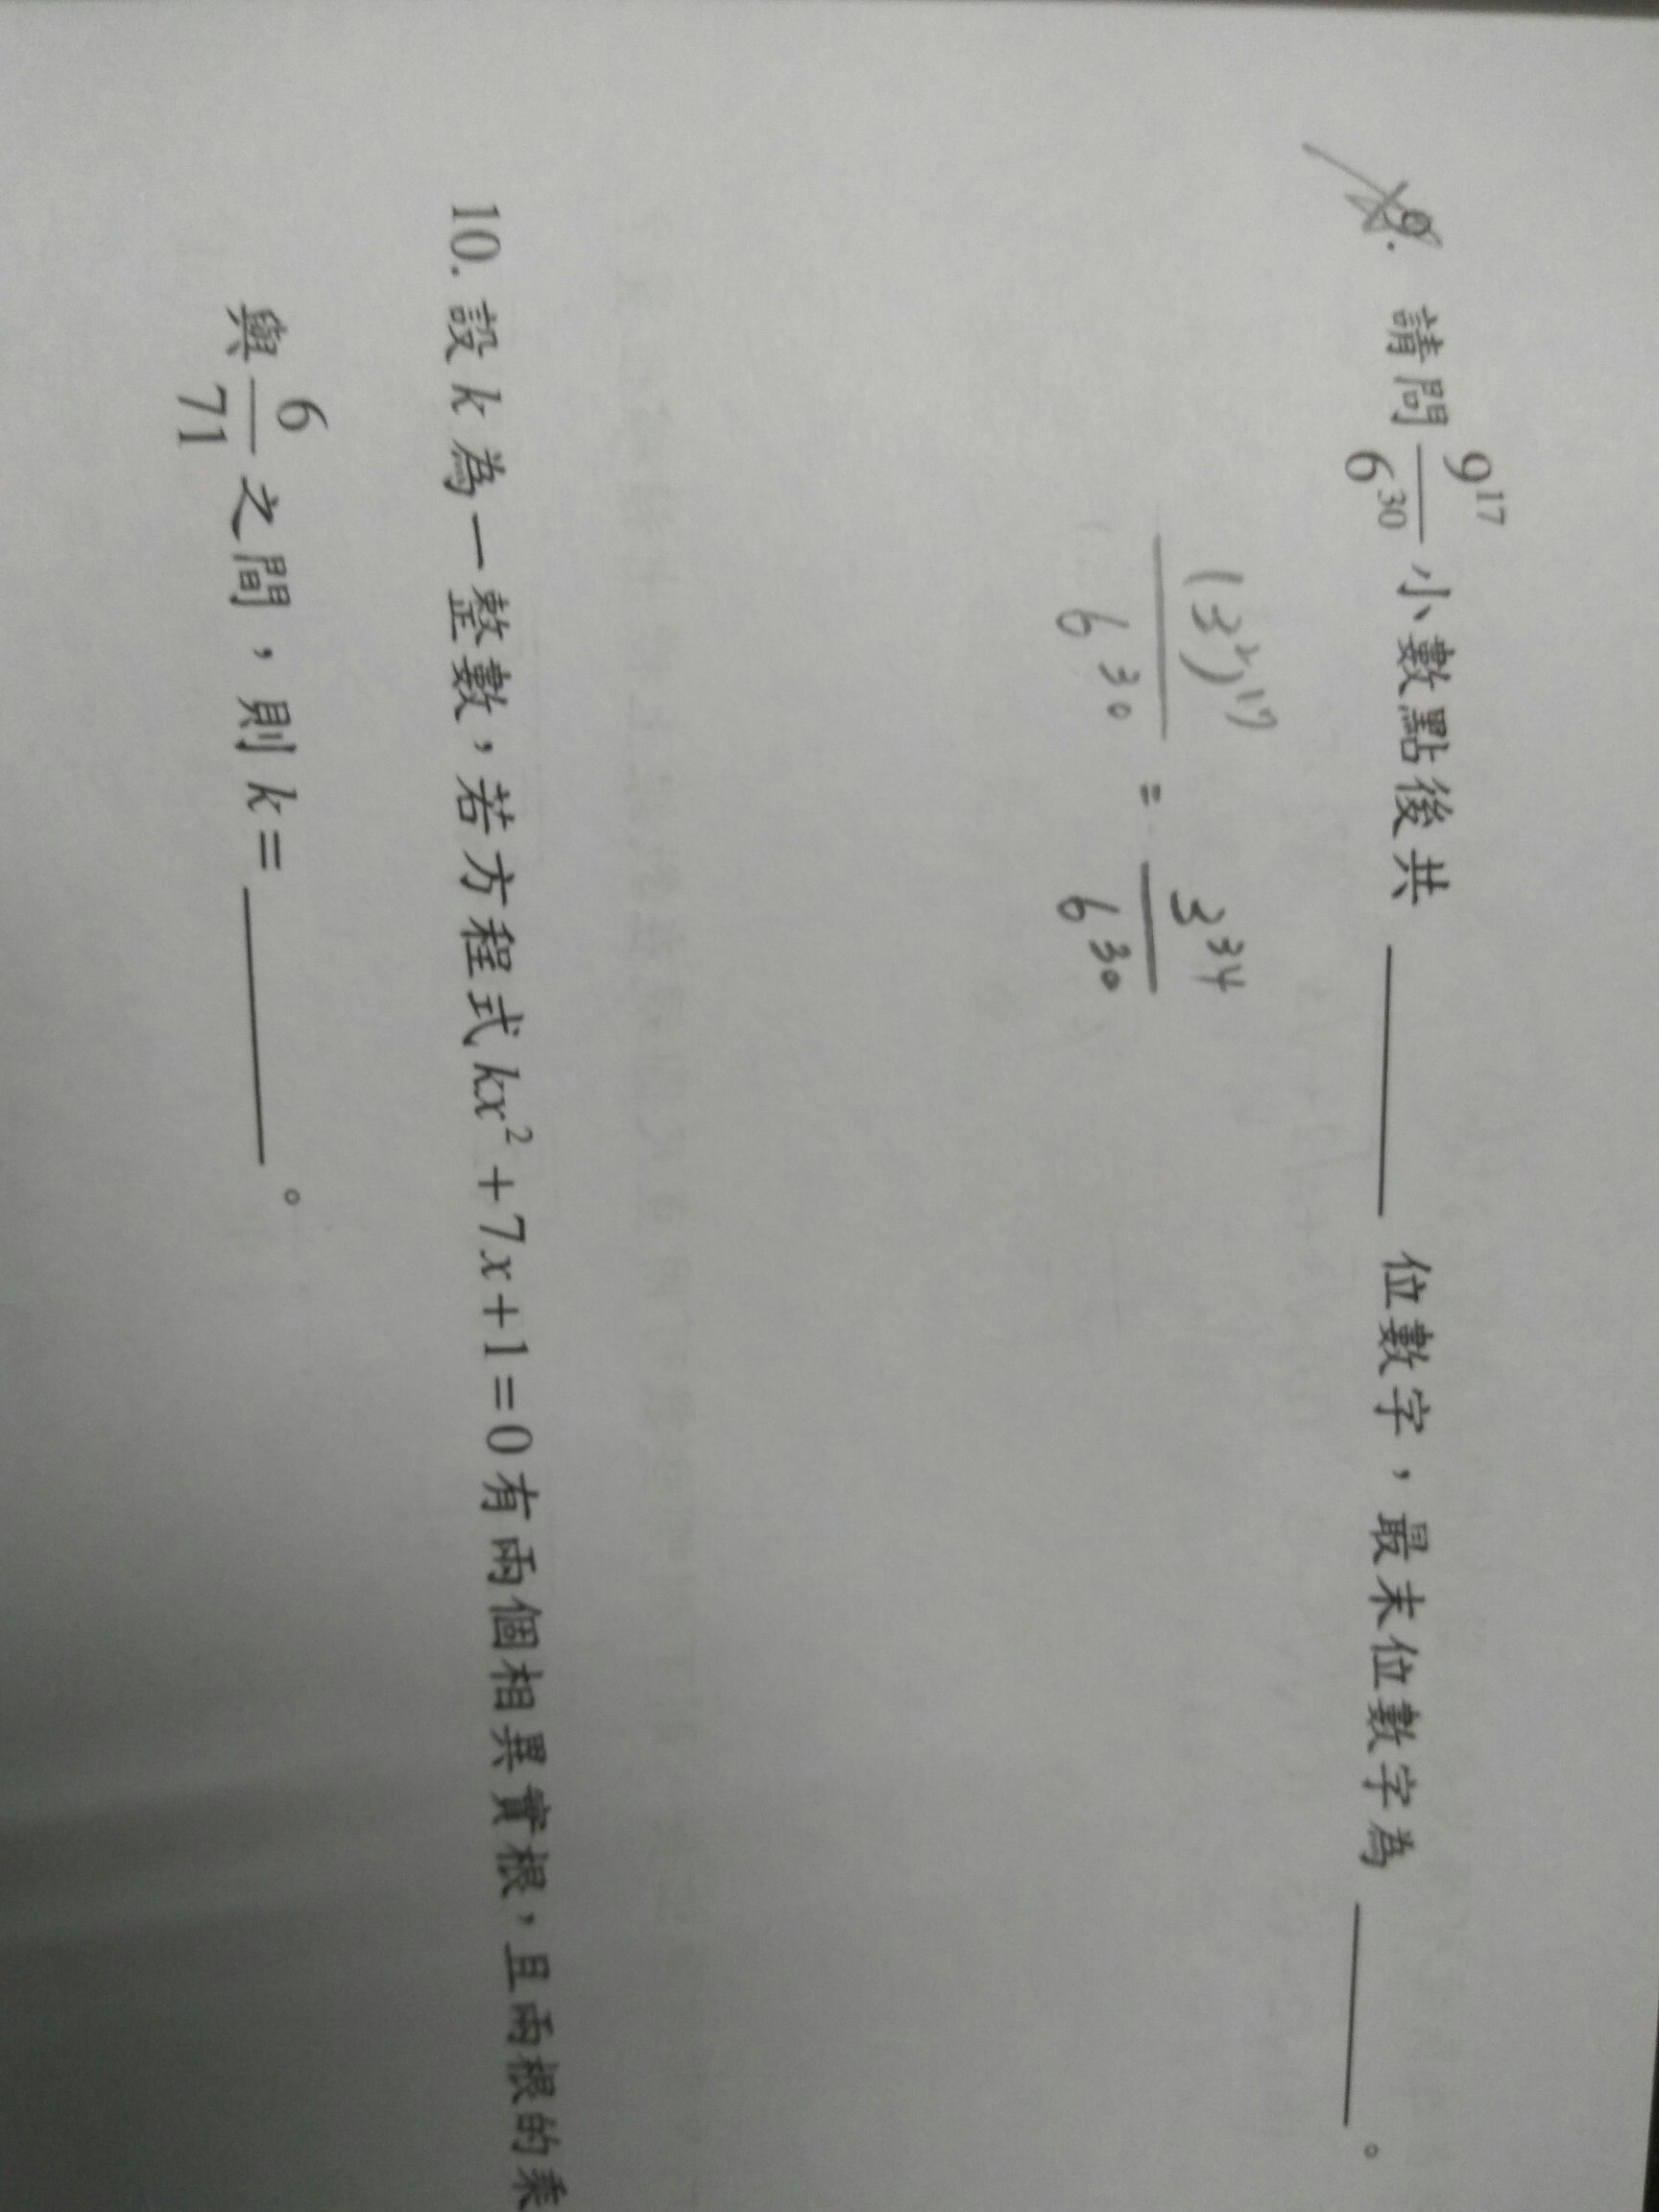 9. 請問 9^17/6^30 小數點後共 ______ 位數字，最末位數字為 ______ 。
(3²)^17/6^30 = 3^34/6^30
10. 設 k 為一整數，若方程式 kx² + 7x + 1 = 0 有兩個相異實根，且兩根的乘
與 6/71 之間，則 k = ______ 。